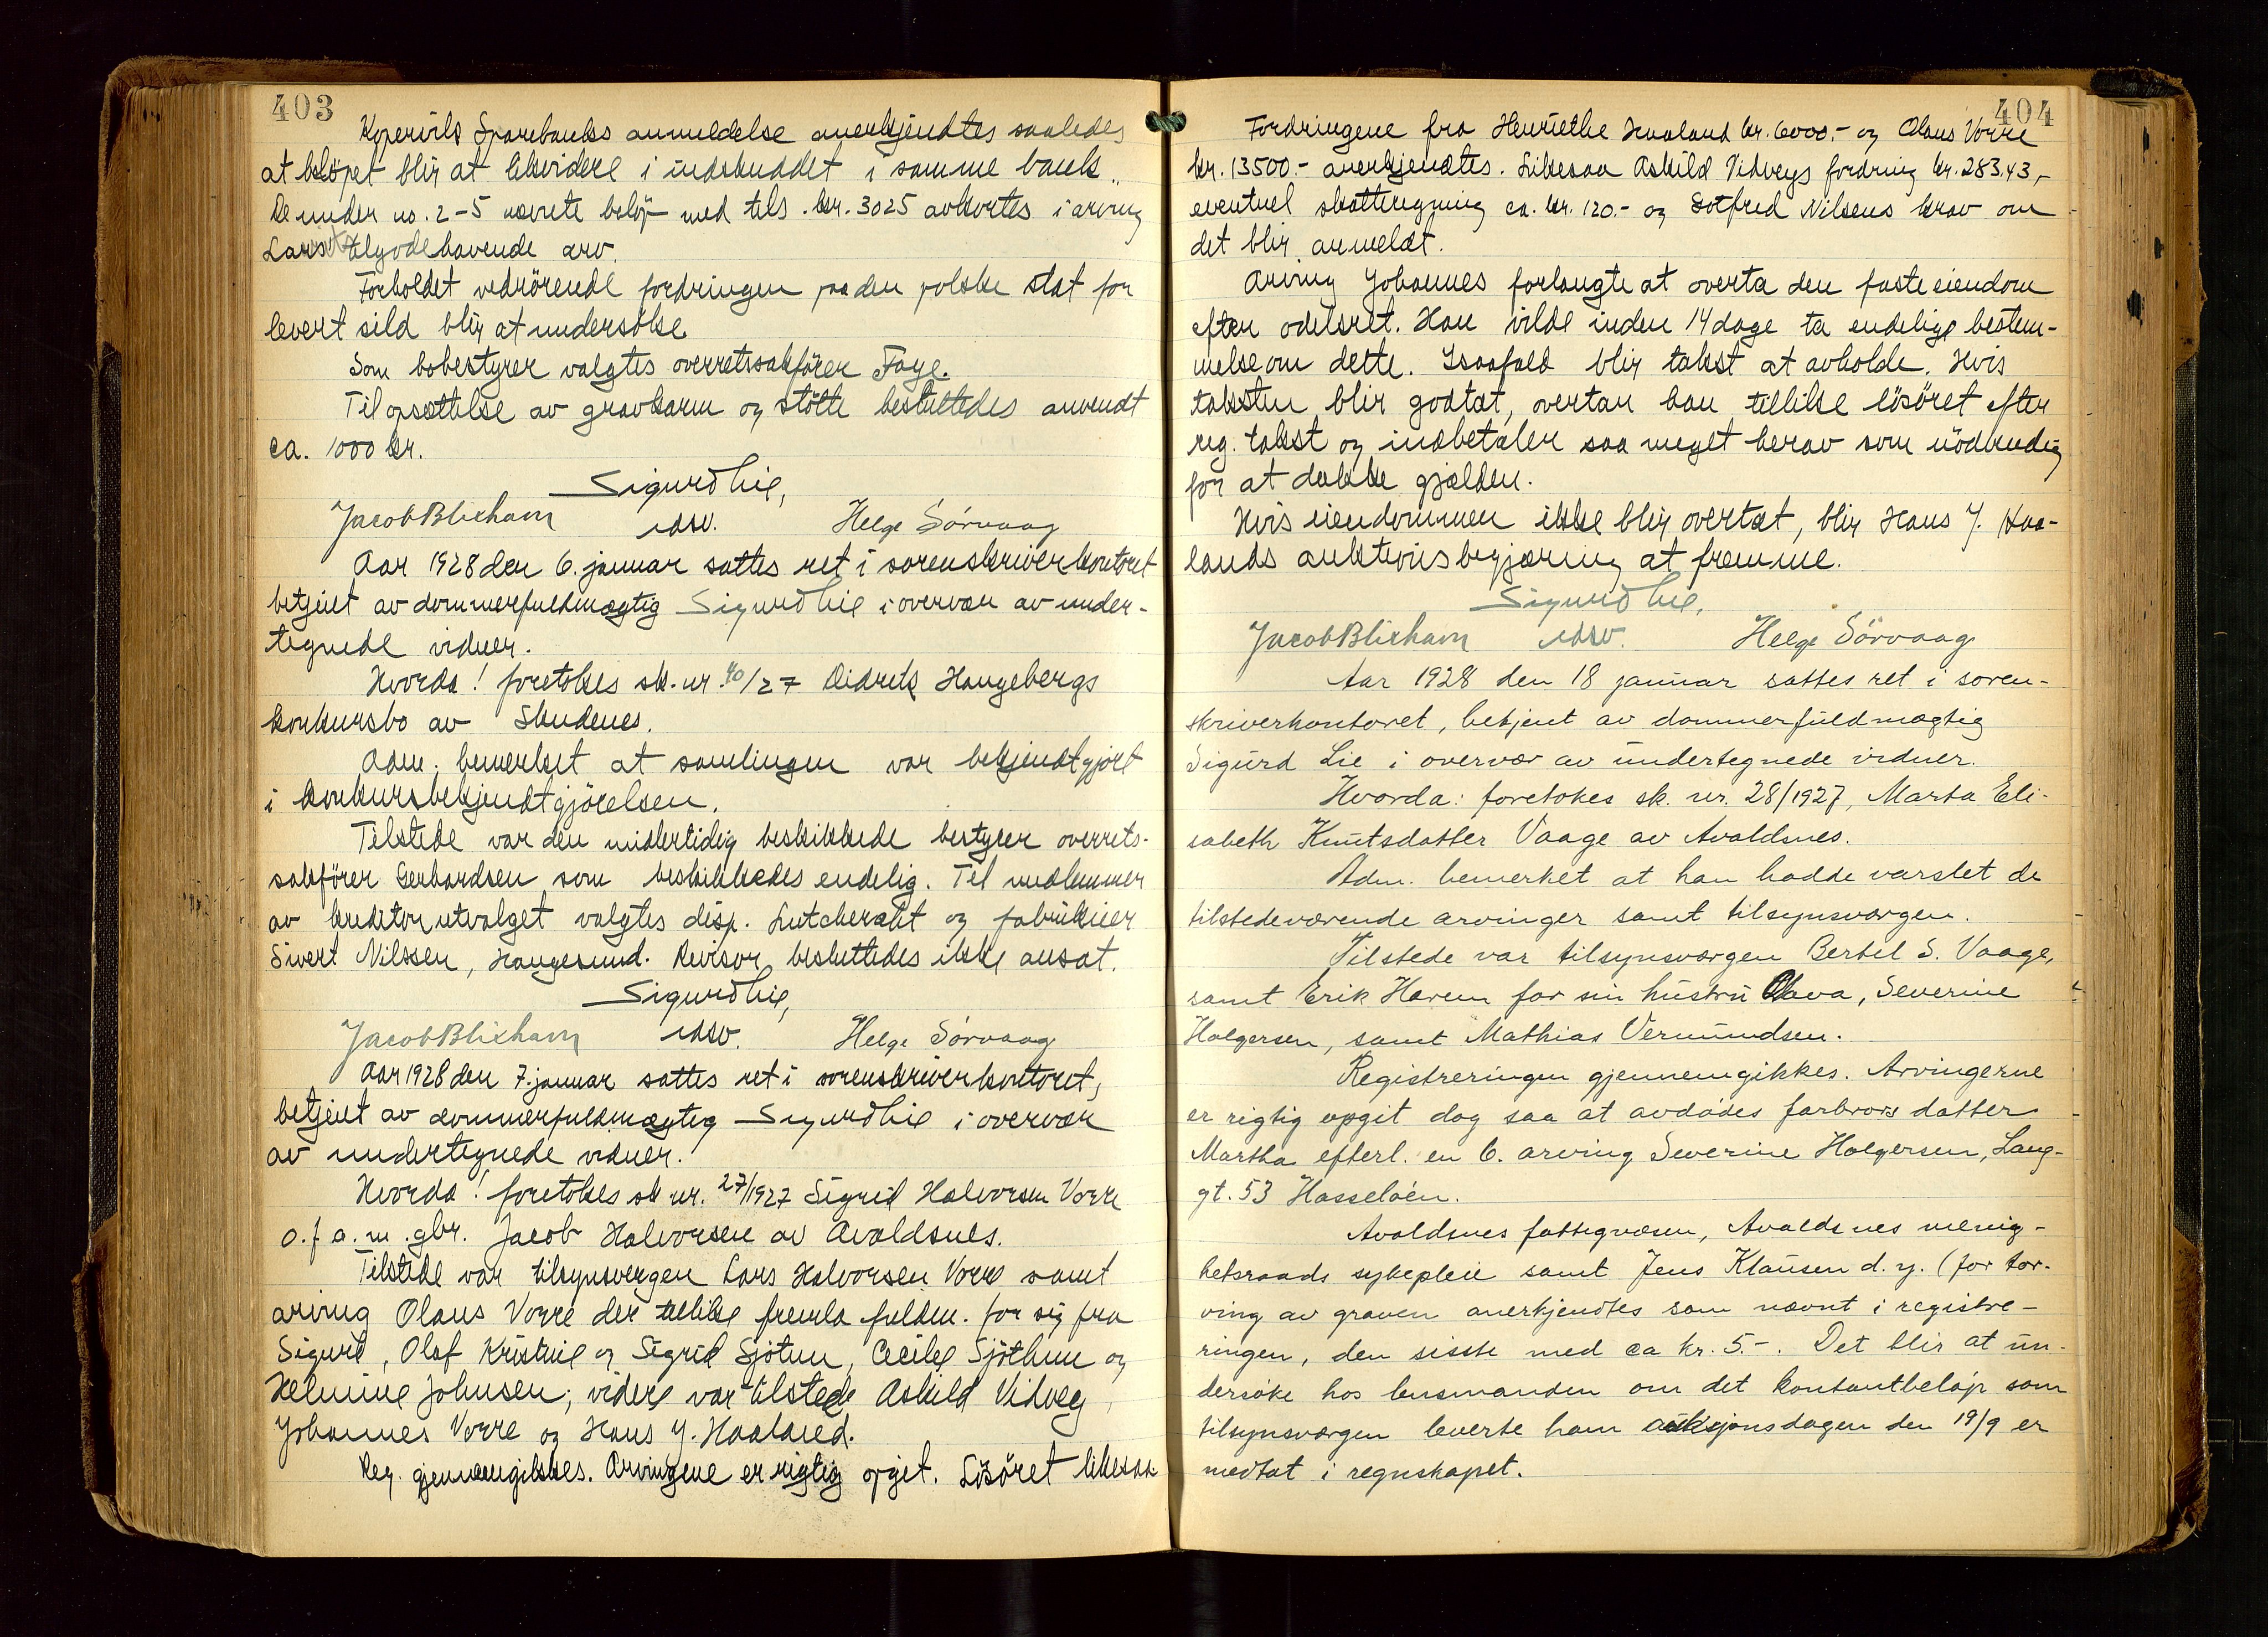 403
Kopervik Sparebanks anmeldelse anerkjendtes saaledes
at beløpet blir at likvidere i indskuddet i samme bank.
De under no. 2-5 nævnte beløp med tils. kr. 3025 avkortes i arving
Lars tilgodehavende arv.
Forholdet vedrörende fordringen paa den polske stat for
levert sild blir at undersöke.
Som bobestyrer valgtes overretssakförer Faye.
Til opsættelse av gravkarm og stötte besluttedes anvendt
ca. 1000 kr.
Sigurd Lie,
Jacob Blixhavn edsv. Helge Sörvaag
Aar 1928 den 6. januar sattes ret i sorenskriverkontoret
betjent av dommerfuldmægtig Sigurd Lie i overvær av under-
tegnede vidner.
Hvorda! foretokes sk. nr. 40/27 Didrik Haugebergs
konkursbo av Skudenes.
Adm. bemerket at samlingen var bekjendtgjort
i konkursbekjendtgjörelsen.
Tilstede var den midlertidig beskikkede bestyrer overrets-
sakförer Gerhardsen som beskikkedes endelig. Til medlemmer
av kreditorutvalget valgtes disp. Lutcherath og fabrikeier
Sivert Nilssen, Haugesund. Revisor besluttedes ikke ansat.
Sigurd Lie,
Jacob Blixhavn edsv. Helge Sörvaag
Aar 1928 den 7. januar sattes ret i sorenskriverkontoret,
betjent av dommerfuldmægtig Sigurd Lie i overvær
av undertegnede vidner.
Hvorda! foretokes sk nr. 27/1927 Sigrid Halvorsen Vorre
o.f a.m. gbr. Jacob Halvorsen av Avaldsnes.
Tilstede var tilsynsvergen Lars Halvorsen Vorre samt
arving Olaus Vorre der tillike fremla fuldm. for sig fra
Sigurd, Olaf Kristine og Sigrid Sjötun, Cecilie Sjöthun og
Helmine Johnsen; videre var tilstede Askild Vidveg,
Johannes Vorre og Hans J. Haaland.
Reg. gjennemgikkes. Arvingene er rigtig opgit. Lösöret likesaa.
404
Fordringene fra Henriethe Haaland kr. 6000.- og Olaus Vorre
kr. 13500.- anerkjendtes. Likesaa Askild Vidvegs fordring kr. 283,43,-
eventuel skatteregning ca. kr. 120.- og Gotfred Nilsens krav om
det blir anmeldt.
Arving Johannes forlangte at overta den faste eiendom
efter odelsret. Han vilde inden 14 dage ta endelige bestem-
melse om dette. Isaafald blir takst at avholde. Hvis
taksten blir godtat, overtar han tillike lösöret efter
reg. takst og indbetaler saa meget herav som nödvendig
for at dække gjælden.
Hvis eiendommen ikke blir overtat, blir Hans J. Haa-
lands auktionsbegjæring at fremme.
Sigurd Lie,
Jacob Blixhavn edsv. Helge Sörvaag
Aar 1928 den 18 januar sattes ret i soren-
skriverkontoret, betjent av dommerfuldmægtig
Sigurd Lie i overvær av undertegnede vidner.
Hvorda: foretokes sk. nr. 28/1927, Marta Eli-
sabeth Knutsdatter Vaage av Avaldsnes.
Adm. bemerket at han hadde varslet de
tilstedeværende arvinger samt tilsynsværgen.
Tilstede var tilsynsværgen Bertel S. Vaage,
samt Erik Havem for sin hustru Olava, Severine
Holgersen, samt Mathias Vermundsen.
Registreringen gjennemgikkes. Arvingerne
er rigtig opgit dog saa at avdödes farbrors datter
Martha efterl. en 6. arving Severine Holgersen, Lang-
gt. 53 Hasseløen.
Avaldsnes fattigvæsen, Avaldsnes menig-
hetsraads sykepleie samt Jens Klausen d.y. (for tor-
ving av graven anerkjendtes som nævnt i registre-
ringen, den sisste med ca kr. 5.-. Det blir at un-
dersøke hos lensmanden om det kontantbeløp som
tilsynsværgen leverte ham auksjonsdagen den 19/9 er
medtat i regnskapet.